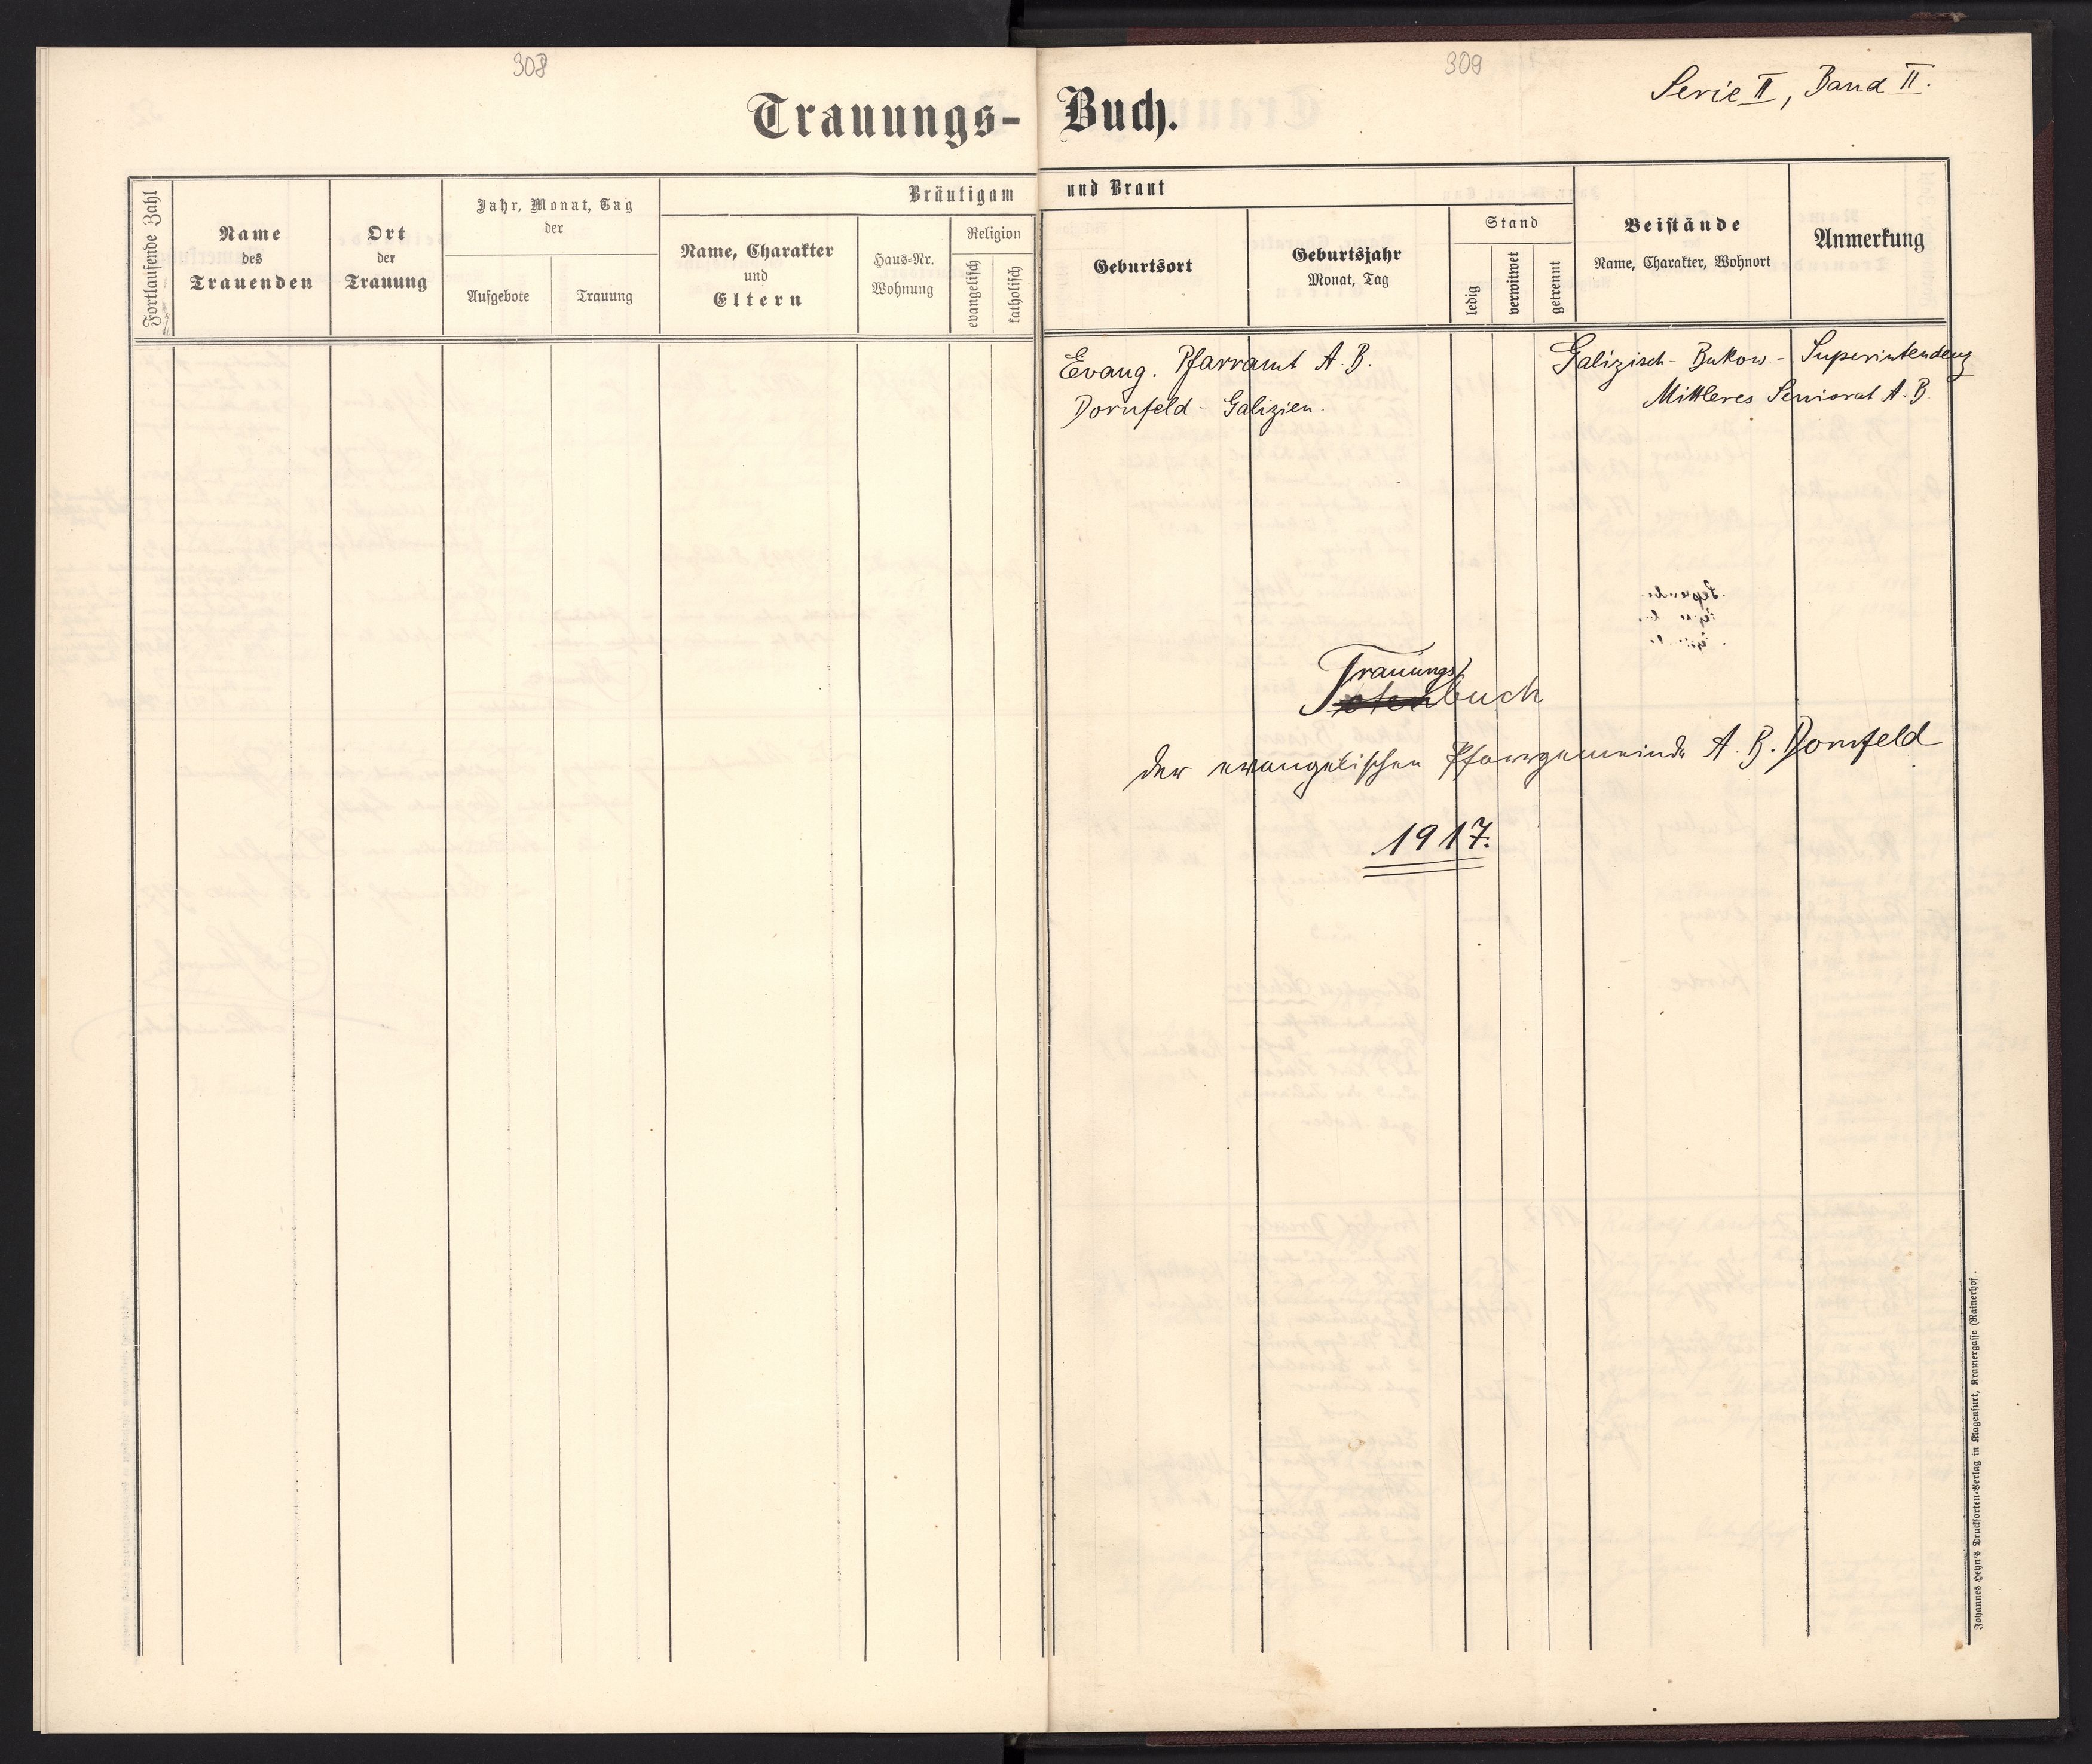 308
309
Serie II, Band II.
Trauungs-Buch.
Fortlaufende Zahl
Name
des
Trauenden
Ort
der
Trauung
Jahr, Monat, Tag
der
Aufgebote
Trauung
Bräutigam und Braut
Name, Charakter
und
Eltern
Haus-Nr.
Wohnung
Religion
evangelisch
katholisch
Geburtsort
Geburtsjahr
Monat, Tag
Stand
ledig
verwitwet
getrennt
Beistände
Name, Charakter, Wohnort
Anmerkung
Evang. Pfarramt A. B.
Dornfeld - Galizien.
Galizisch - Bukow - Superintendenz
Mittleres Seniorat A. B.
Trauungs
Totenbuch
der evangelischen Pfarrgemeinde A. B. Dornfeld
1917.
Johannes Heyn's Drucksorten-Verlag in Klagenfurt, Kramergasse (Rainerhof).